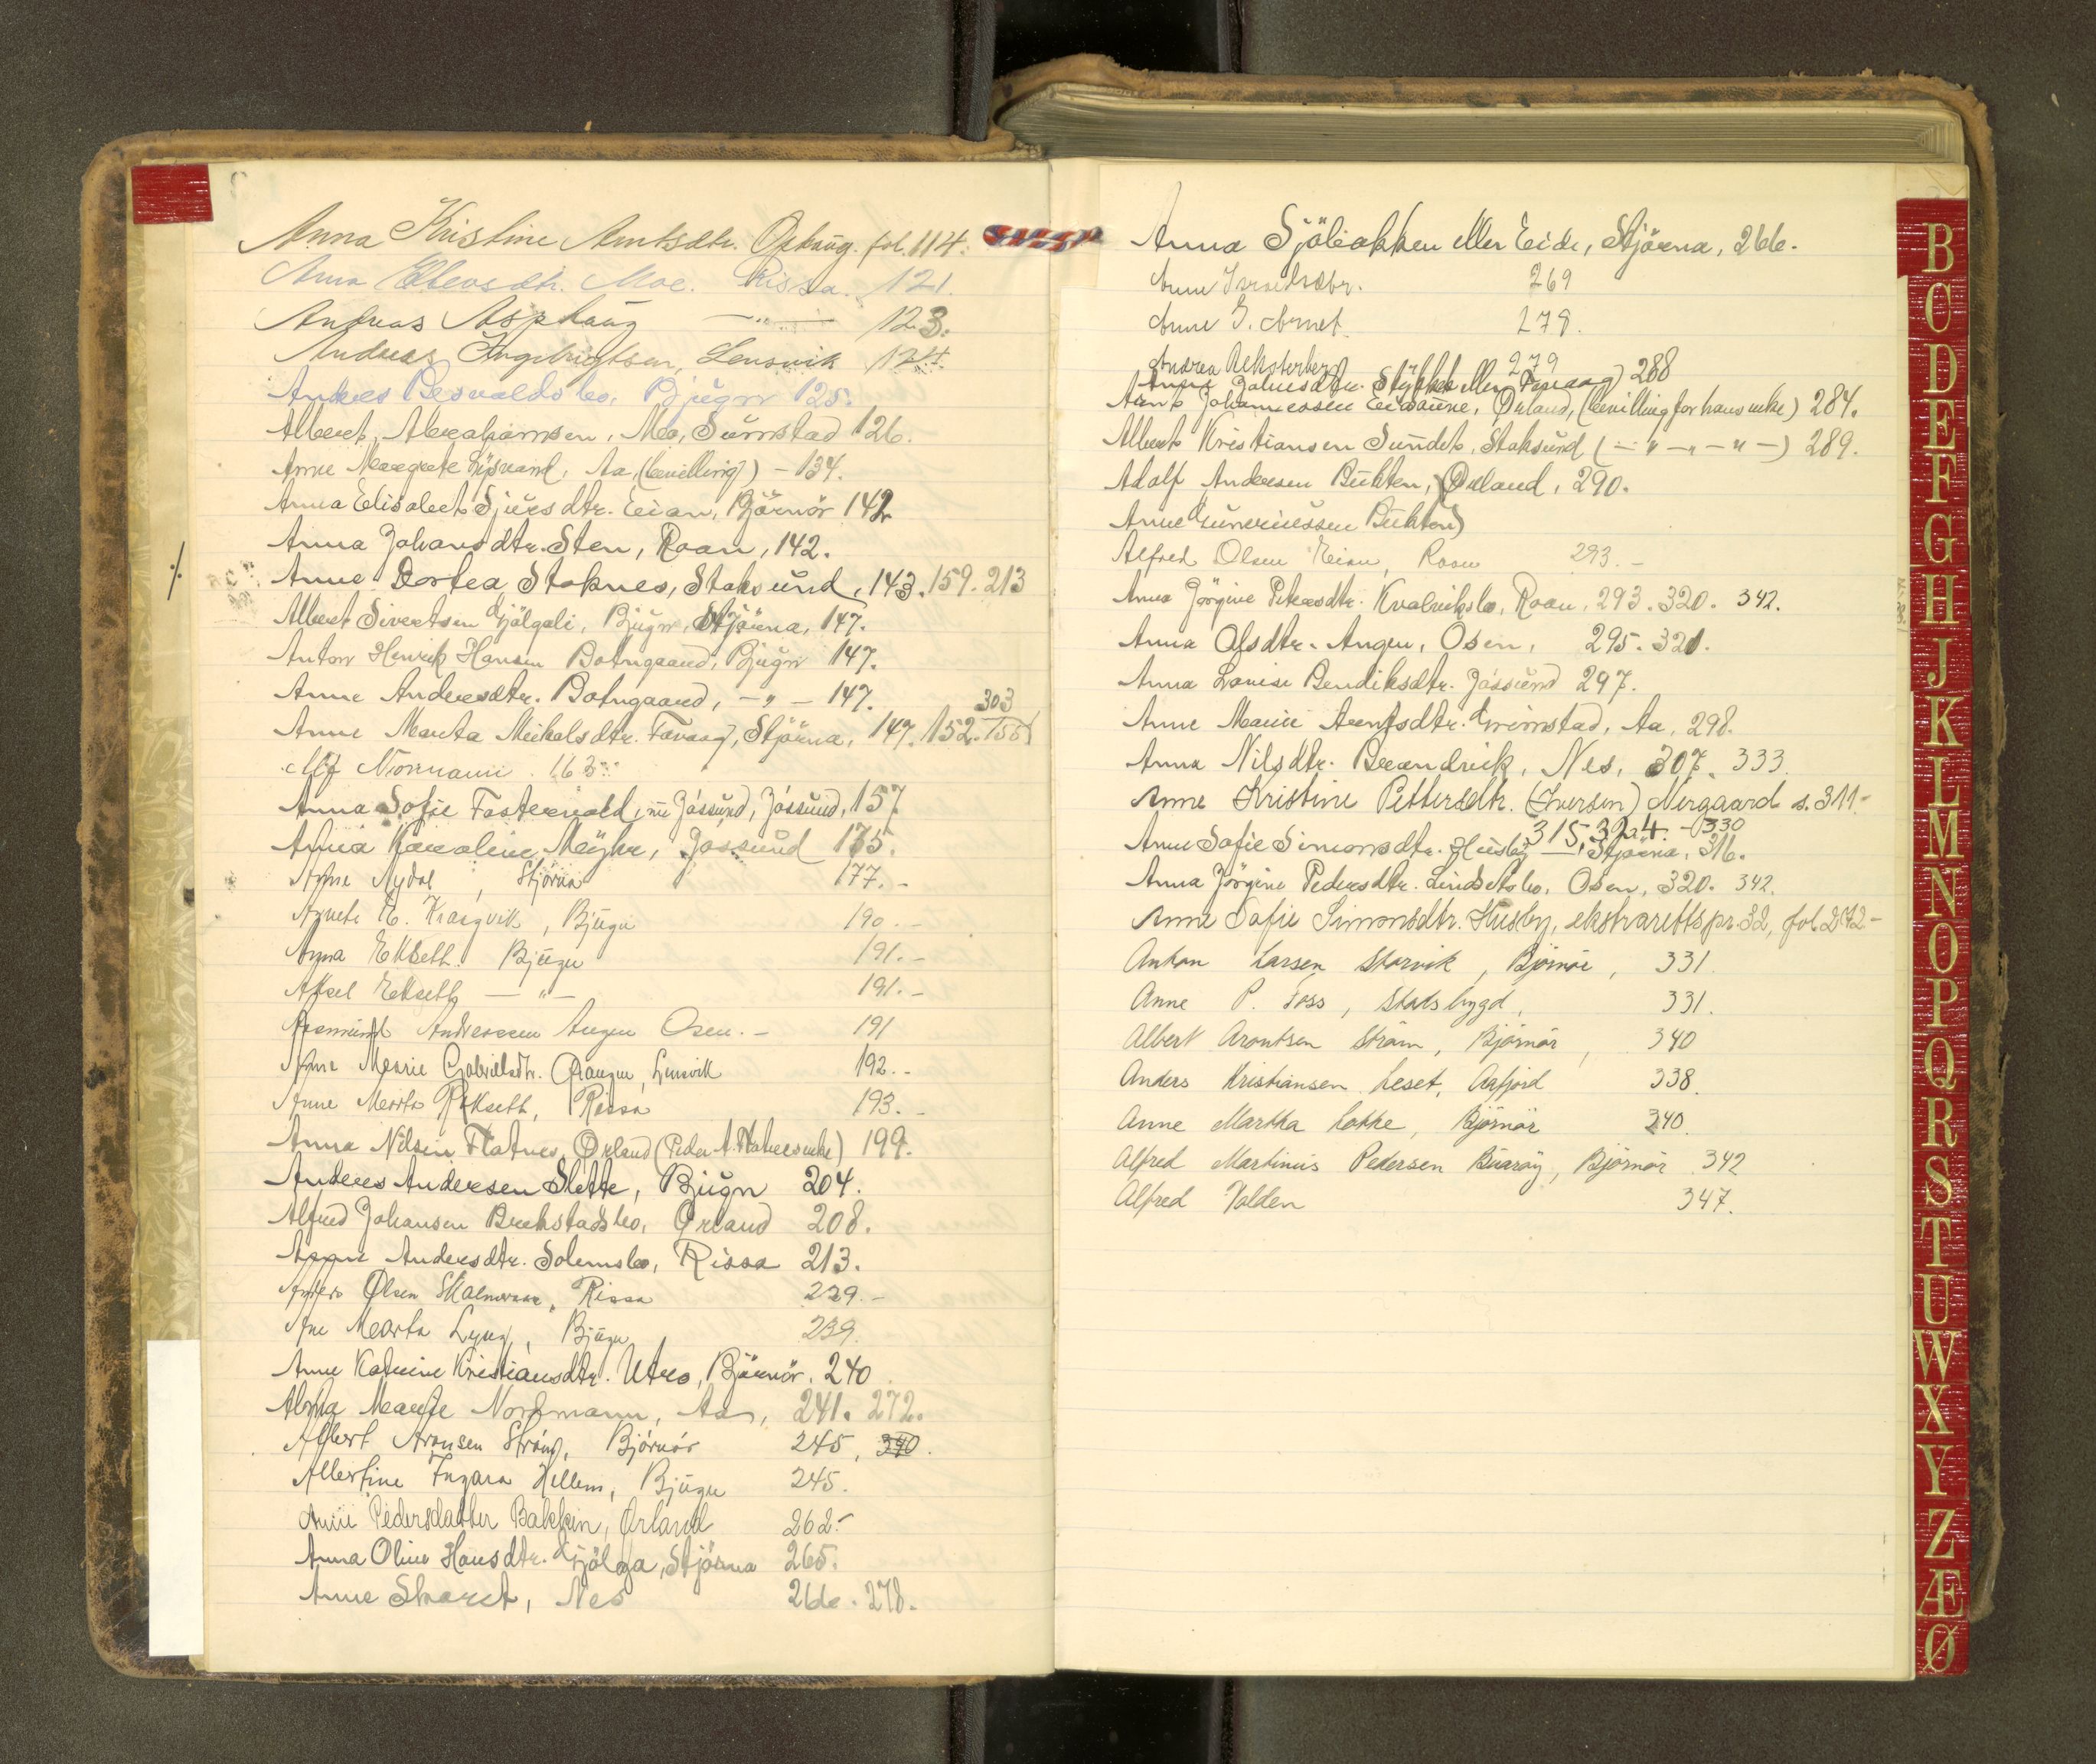 Anna Kristine Arntsdtr. Ophaug. fol. 114.
Anna Ellevsdtr. Moe. Rissa. 121.
Andreas Asphaug —"— 123.
Andreas Ingebrigtsen, Lensvik 124.
Anders Besvaldsbo, Bjugn 125.
Albert Abrahamsen, Mo, Sumstad 126.
Anne Margrete Lysvand, Aa, (bevilling) - 134.
Anna Elisabet Sjursdtr. Eian, Björnör 142
Anna Johansdtr. Sten, Roan, 142.
Anne Dortea Stoknes, Stoksund, 143. 159. 213
Albert Sivertsen Gjölgali, Bjugn, Stjörna, 147.
Anton Henrik Hansen Botngaard, Bjugn 147.
Anne Andersdtr. Botngaard, - " - 147.
303
Anne Marta Mikalsdtr. Fevaag, Stjörna, 147. 152. 155
Alf Normann 163
Anna Sofie Fostervold, nu Jössund, Jössund, 157
Anna Karoline Myhr, Jössund 175.
Anne Nydal, Stjörna 177. -
Agnete E. Kraagvik, Bjugn 190. -
Anna Ekseth. Bjugn 191. -
Aksel Ekseth — " — 191. -
Andreassen Angen Osen. - 191
Anne Marie Gabrielsdtr. Grangen, Lensvik 192. -
Anne Marta Rokseth, Rissa 193. -
Anna Nilsen Flatnes, Ørland (Peder A. Flatnes enke) 199.
Anders Andersen Slette, Bjugn 204.
Alfred Johansen Brekstadbo, Ørland 208.
Andersdtr. Solemsbo, Rissa 213.
Anders Olsen Rissa 229. -
Ane Marta Lyng, Bjugn 239.
Anne Katrine Kristiansdtr. Utro, Björnör. 240
Alma Marete Nordmann, Aa, 241. 272.
Albert Aronsen Ström, Björnör 245, 340.
Albertine Ingara Hellem, Bjugn 245.
Anne Pedersdatter Bakken, Ørland 262. -
Anna Oline Hansdtr. Gjölga, Stjörna 265.
Anne Skaret, Nes 266. 278.
Anna Sjöbakken eller Eide, Stjörna, 266.
Anne Israelsdtr. 269
Anne J. Arnet 278.
Andrea Reksterberg 279
Anna Johnesdtr. Stykket eller Fevaag) 288
Arnt Johannessen Eidsaune, Ørland, (bevilling for hans enke) 284.
Albert Kristiansen Sundet, Stoksund (— " — " — " —) 289.
Adolf Andersen Bukten, Ørland, 290.
Anne Guneriussen Bukten)
Alfred Olsen Eian, Roan 293. -
Anna Jörgine Petersdtr. Kvalviksbo, Roan, 293. 320. 342.
Anna Olsdtr. Angen, Osen, 295. 321.
Anna Louise Bendiksdtr. Jössund 297.
Anne Marie Arentsdtr. Grimstad, Aa, 298.
Anna Nilsdtr. Brandvik, Nes, 307. 333.
Anne Kristine Pettersdtr. (Iversen) Nergaard s. 311 -
315, 324. - 330
Anne Sofie Simonsdtr. Husby — Stjörna, 316.
Anna Jörgine Pedersdtr. Lindsetbo, Osen, 320. 342.
Anne Sofie Simonsdtr. Husby, ekstrarettspr. 32, fol. 272 -
Anton Larsen Storvik, Björnör, 331.
Anne P. Foss, Stadsbygd, 331.
Albert Arontsen Ström, Björnör, 340
Anders Kristiansen Leset, Aafjord 338.
Anne Martha Lokke, Björnör 340.
Alfred Martinius Pedersen Buaröy, Björnör 342
Alfred Volden 347.
B
C
D
E
F
G
H
J
K
L
M
N
O
P
Q
R
S
T
U
W
X
Y
Z
Æ
Ø